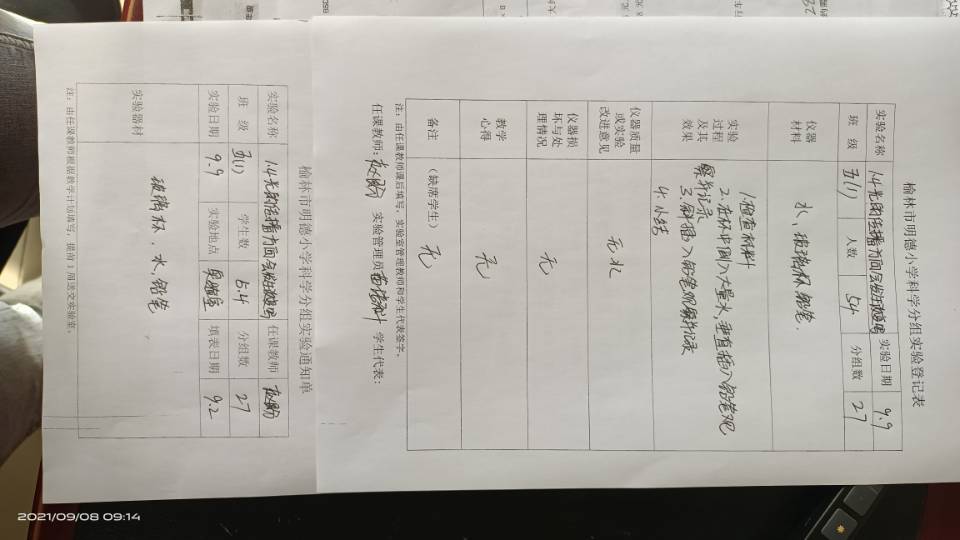 榆林市明德小学科学分组实验登记表
实验名称 1.4光的传播方向会发生改变吗 实验日期 9.9
班 级 五(1) 人数 54 分组数 27
仪器
材料 水、玻璃杯 铅笔.
实验
过程
及其
效果
1.检查材料
2.在杯中倒入大量水,垂直插入铅笔观
察并记录
3.斜插入铅笔观察并记录
4.小结
仪器质量
或实验
改进意见
无
仪器损
坏与处
理情况
无
教学
心得
无
备注 (缺席学生) 无
注:由任课教师课后填写,实验室管理教师和学生代表签字。
任课教师: 实验管理员 学生代表:
榆林市明德小学科学分组实验通知单
实验名称 1.4光的传播方向会发生改变吗 任课教师
班 级 五(1) 学生数 54 分组数 27
实验日期 9.9 实验地点 实验室 填表日期 9.2
实验器材 玻璃杯、水,铅笔
注:由任课教师根据教学计划填写,提前1周送交实验室。
2021/09/08 09:14